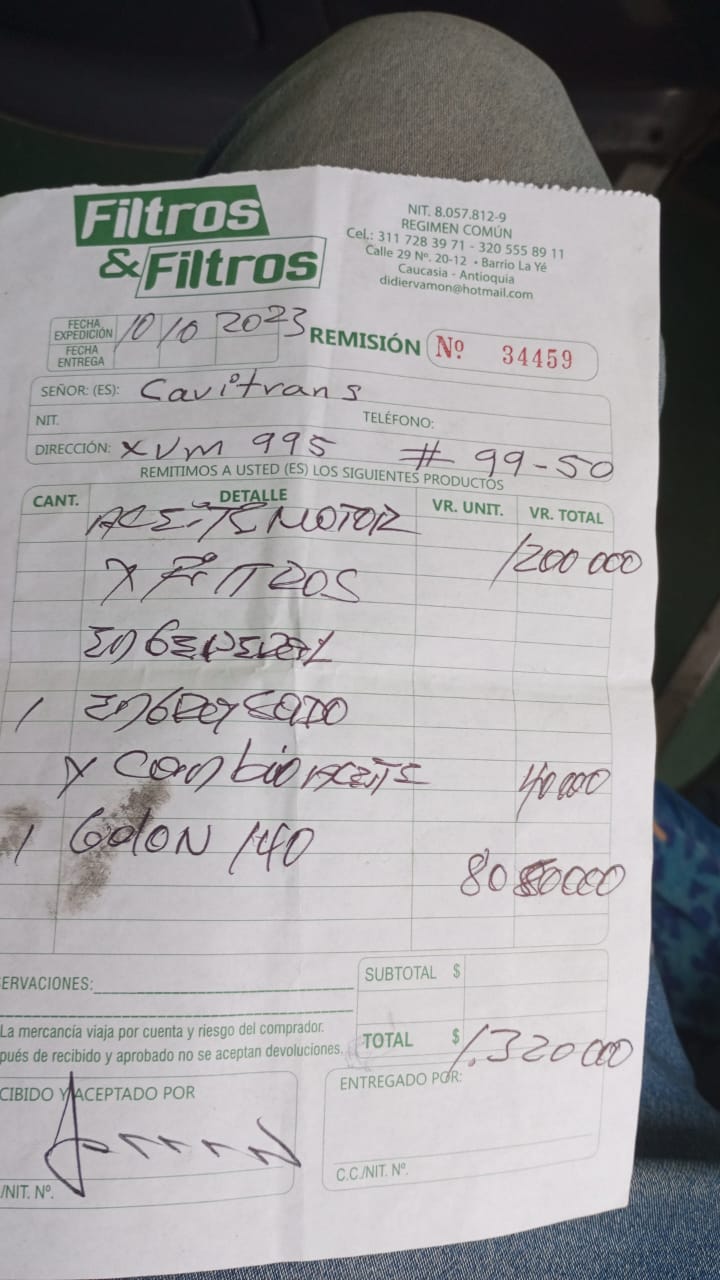 Filtros
& Filtros
NIT. 8.057.812-9
REGIMEN COMÚN
Cel.: 311 728 39 71 - 320 555 89 11
Calle 29 Nº. 20-12 • Barrio La Yé
Caucasia - Antioquia
didiervamon@hotmail.com
FECHA EXPEDICIÓN 10 10 2023
FECHA ENTREGA
REMISIÓN Nº 34459
SEÑOR: (ES): Cavitrans
NIT. TELÉFONO:
DIRECCIÓN: XVM 995 # 99-50
REMITIMOS A USTED (ES) LOS SIGUIENTES PRODUCTOS
CANT. DETALLE VR. UNIT. VR. TOTAL
ACEITE MOTOR
1200 000
X FILTROS
EN GENERAL
1 ENGRASADO
Y Cambio ACEITE 40 000
1 GALON 140
000
SUBTOTAL $
ERVACIONES:
La mercancía viaja por cuenta y riesgo del comprador.
pués de recibido y aprobado no se aceptan devoluciones.
TOTAL $ 1.320 000
CIBIDO Y ACEPTADO POR
ENTREGADO POR:
/NIT. Nº.
C.C./NIT. Nº.